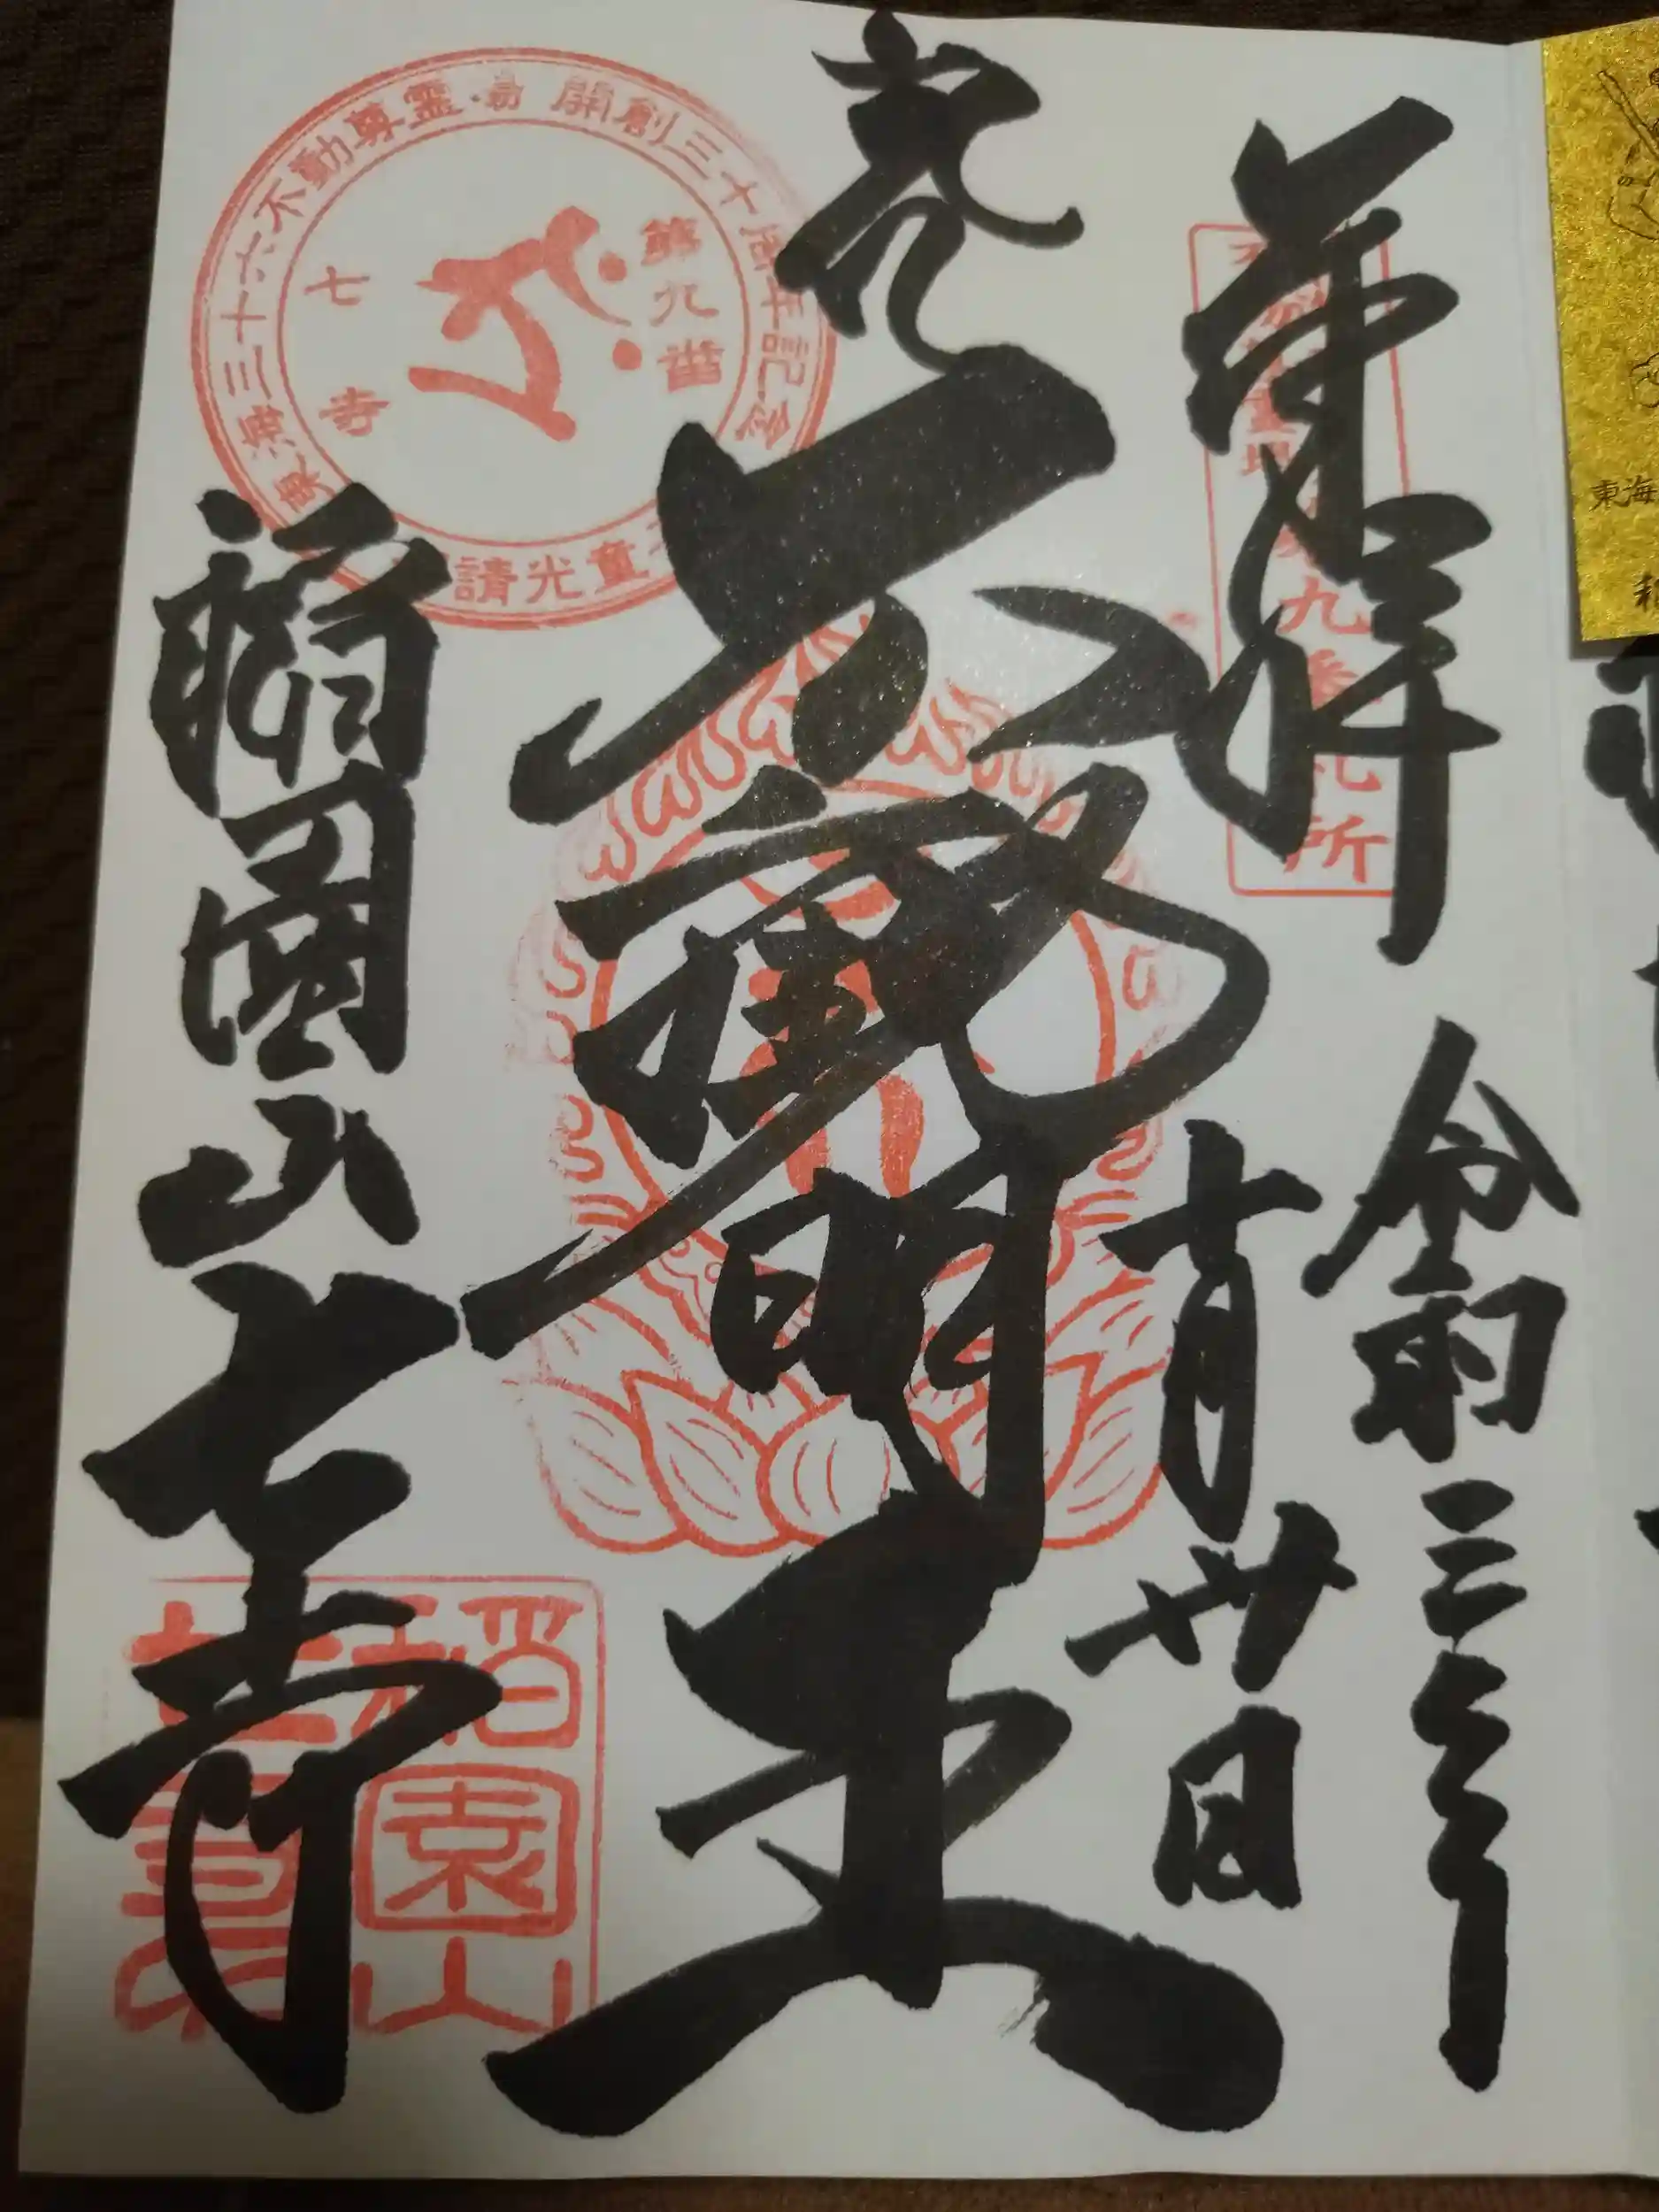 奉拝
令和三年
十月廿日
不動明王
稲園山
七寺
東海三十六不動尊霊場 開創三十周年記念
第九番
七寺
童光請
九番札所
稲園山
東海